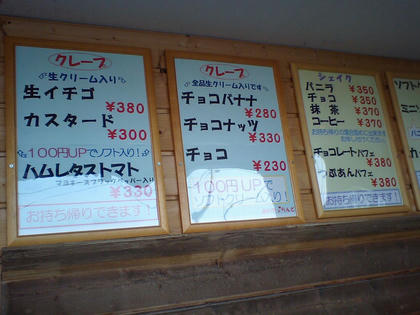 クレープ
生クリーム入り
生イチゴ
¥380
カスタード
¥300
100円UPでソフト入り!
ハムレタストマト
マヨネーズブラックペッパー入り
¥330
お持ち帰りできます!
クレープ
全品生クリーム入りです
チョコバナナ
¥280
チョコナッツ
¥330
チョコ
¥230
100円UPで
ソフトクリーム入り!
シェイク
バニラ ¥350
チョコ ¥350
抹茶 ¥370
コーヒー ¥370
チョコレートパフェ
¥380
つぶあんパフェ
¥380
お持ち帰りできます!
ソフト
ミニ